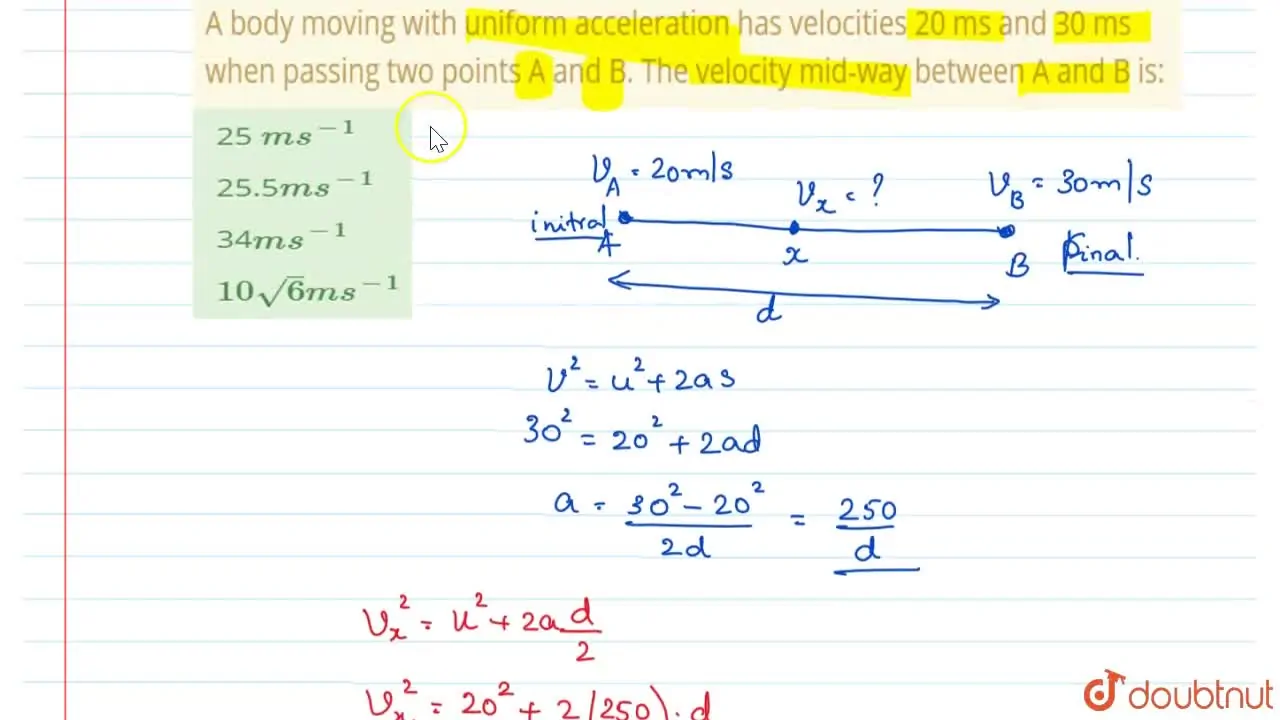 A body moving with uniform acceleration has velocities 20 ms and 30 ms
when passing two points A and B. The velocity mid-way between A and B is:
25 ms⁻¹
25.5ms⁻¹
34ms⁻¹
10√6ms⁻¹
V_A = 20m/s
V_x = ?
V_B = 30m/s
initial
A
x
B
final.
d
V² = u² + 2as
30² = 20² + 2ad
a = 30² - 20² / 2d = 250 / d
V_x² = u² + 2a d/2
V_x² = 20² + 2(250) . d
doubtnut